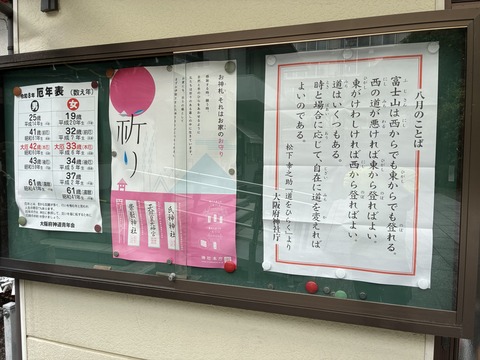 八月のことば
富士山は西からでも東からでも登れる。
西の道が悪ければ東から登ればよい。
東がけわしければ西から登ればよい。
道はいくつもある。
時と場合に応じて、自在に道を変えれば
よいのである。
松下幸之助『道をひらく』より
大阪府神社庁
お神札、それはお家のお守り
祈り
氏神神社
神社本庁
令和8年 厄年表 (数え年)
男
女
25歳
19歳
平成14年生
平成20年生
41歳(前厄)
32歳(前厄)
大厄42歳(本厄)
大厄33歳(本厄)
43歳(後厄)
34歳(後厄)
37歳
61歳(還暦)
61歳(還暦)
大阪府神道青年会